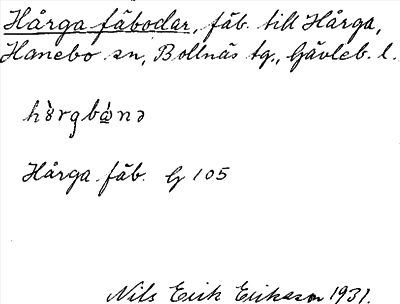 Hårga fäbodar, fäb. till Hårga,
Hanebo sn, Bollnäs tg., Gävleb. l.
hårgbánə
Hårga fäb. G 105
Nils Erik Eriksson 1931.